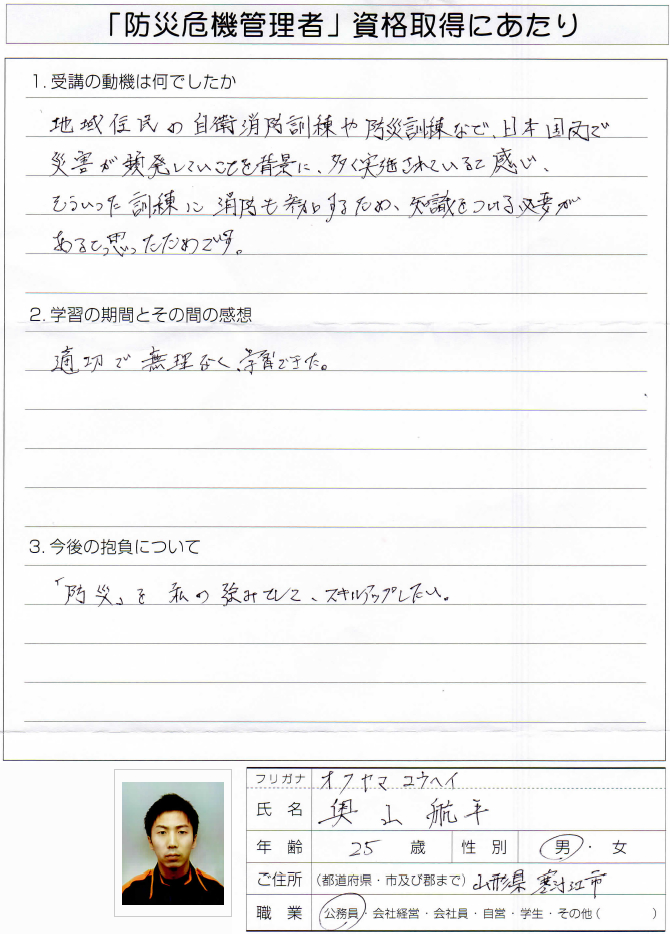 「防災危機管理者」資格取得にあたり
1. 受講の動機は何でしたか
地域住民の自衛消防訓練や防災訓練など、日本国内で
災害が頻発していることを背景に、多く実施されていると感じ、
そういった訓練に消防も参加するため、知識をつける必要が
あると思ったためです。
2. 学習の期間とその間の感想
適切で無理なく、学習できた。
3. 今後の抱負について
「防災」を私の強みとして、スキルアップしたい。
フリガナ オクヤマ コウヘイ
氏名 奥山 航平
年齢 25 歳 性別 男・女
ご住所 (都道府県・市及び郡まで) 山形県 寒河江市
職業 公務員・会社経営・会社員・自営・学生・その他( )